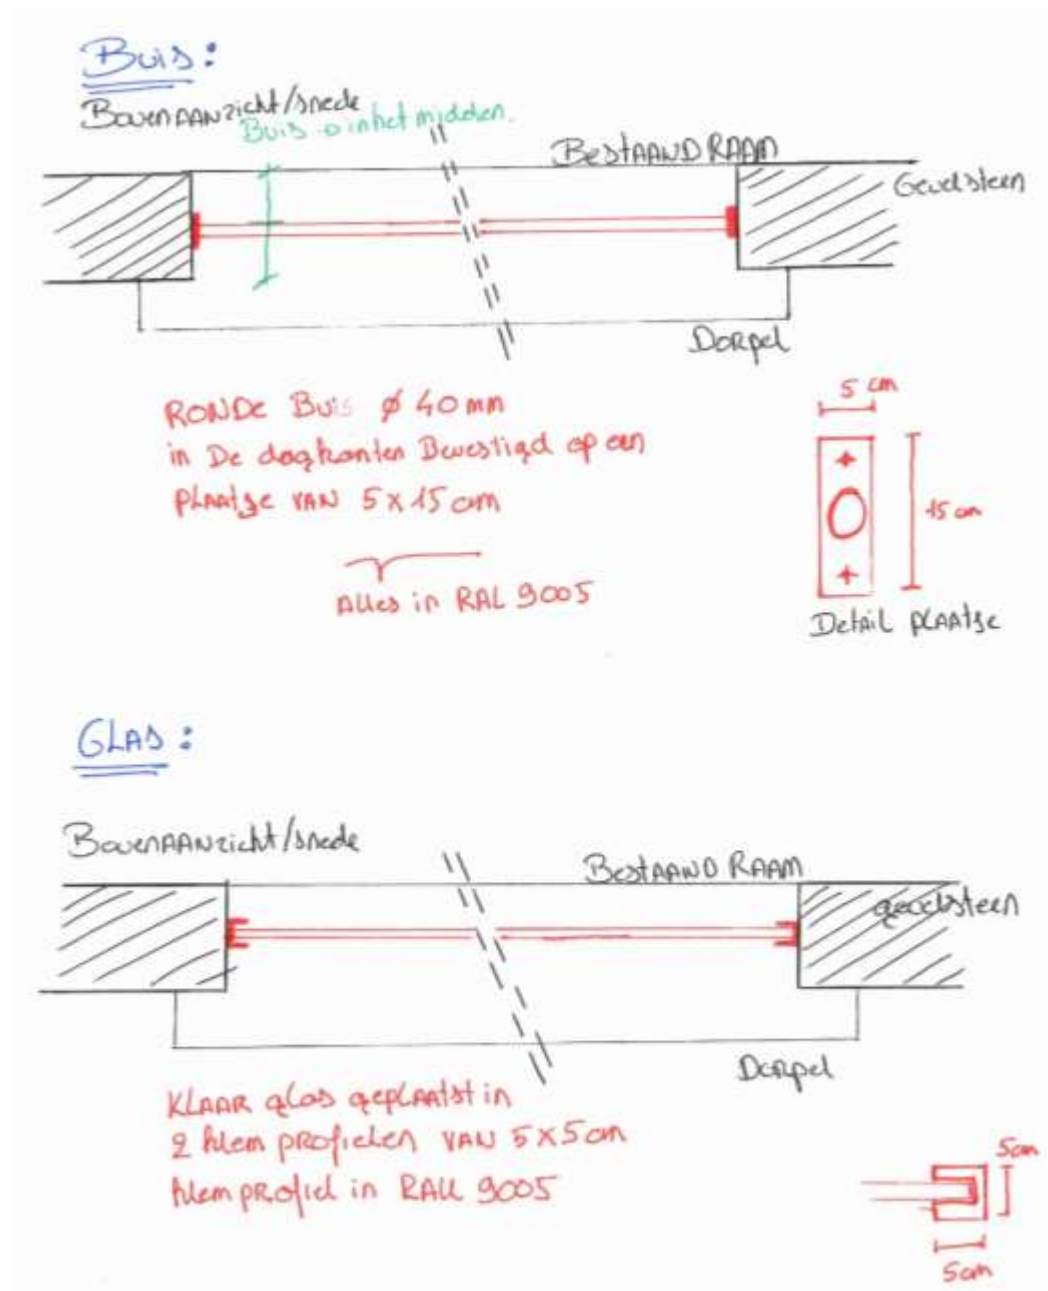 Buis:
Bovenaanzicht/snede
Buis in het midden.
Bestaand Raam
Gevelsteen
Dorpel
Ronde Buis ø 40mm
in De dagkanten Bevestigd op een
plaatje van 5x15cm
Alles in RAL 9005
5 cm
15 cm
Detail plaatje
GLAS:
Bovenaanzicht/snede
Bestaand Raam
gevelsteen
Dorpel
Klaar glas geplaatst in
2 klem profielen van 5x5cm
klem profiel in RAL 9005
5cm
5cm